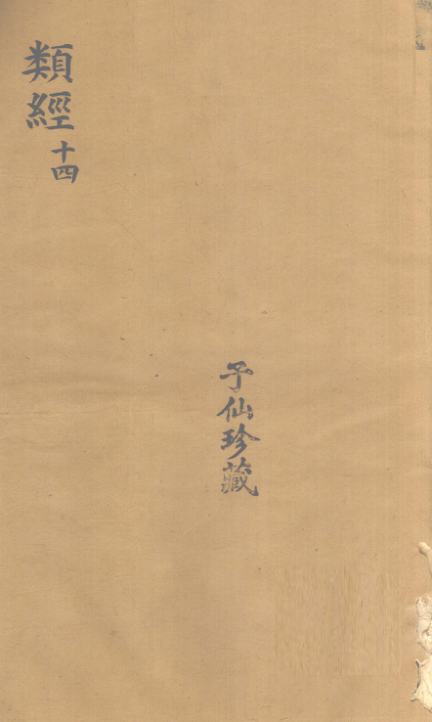 類經十四
子仙珍藏